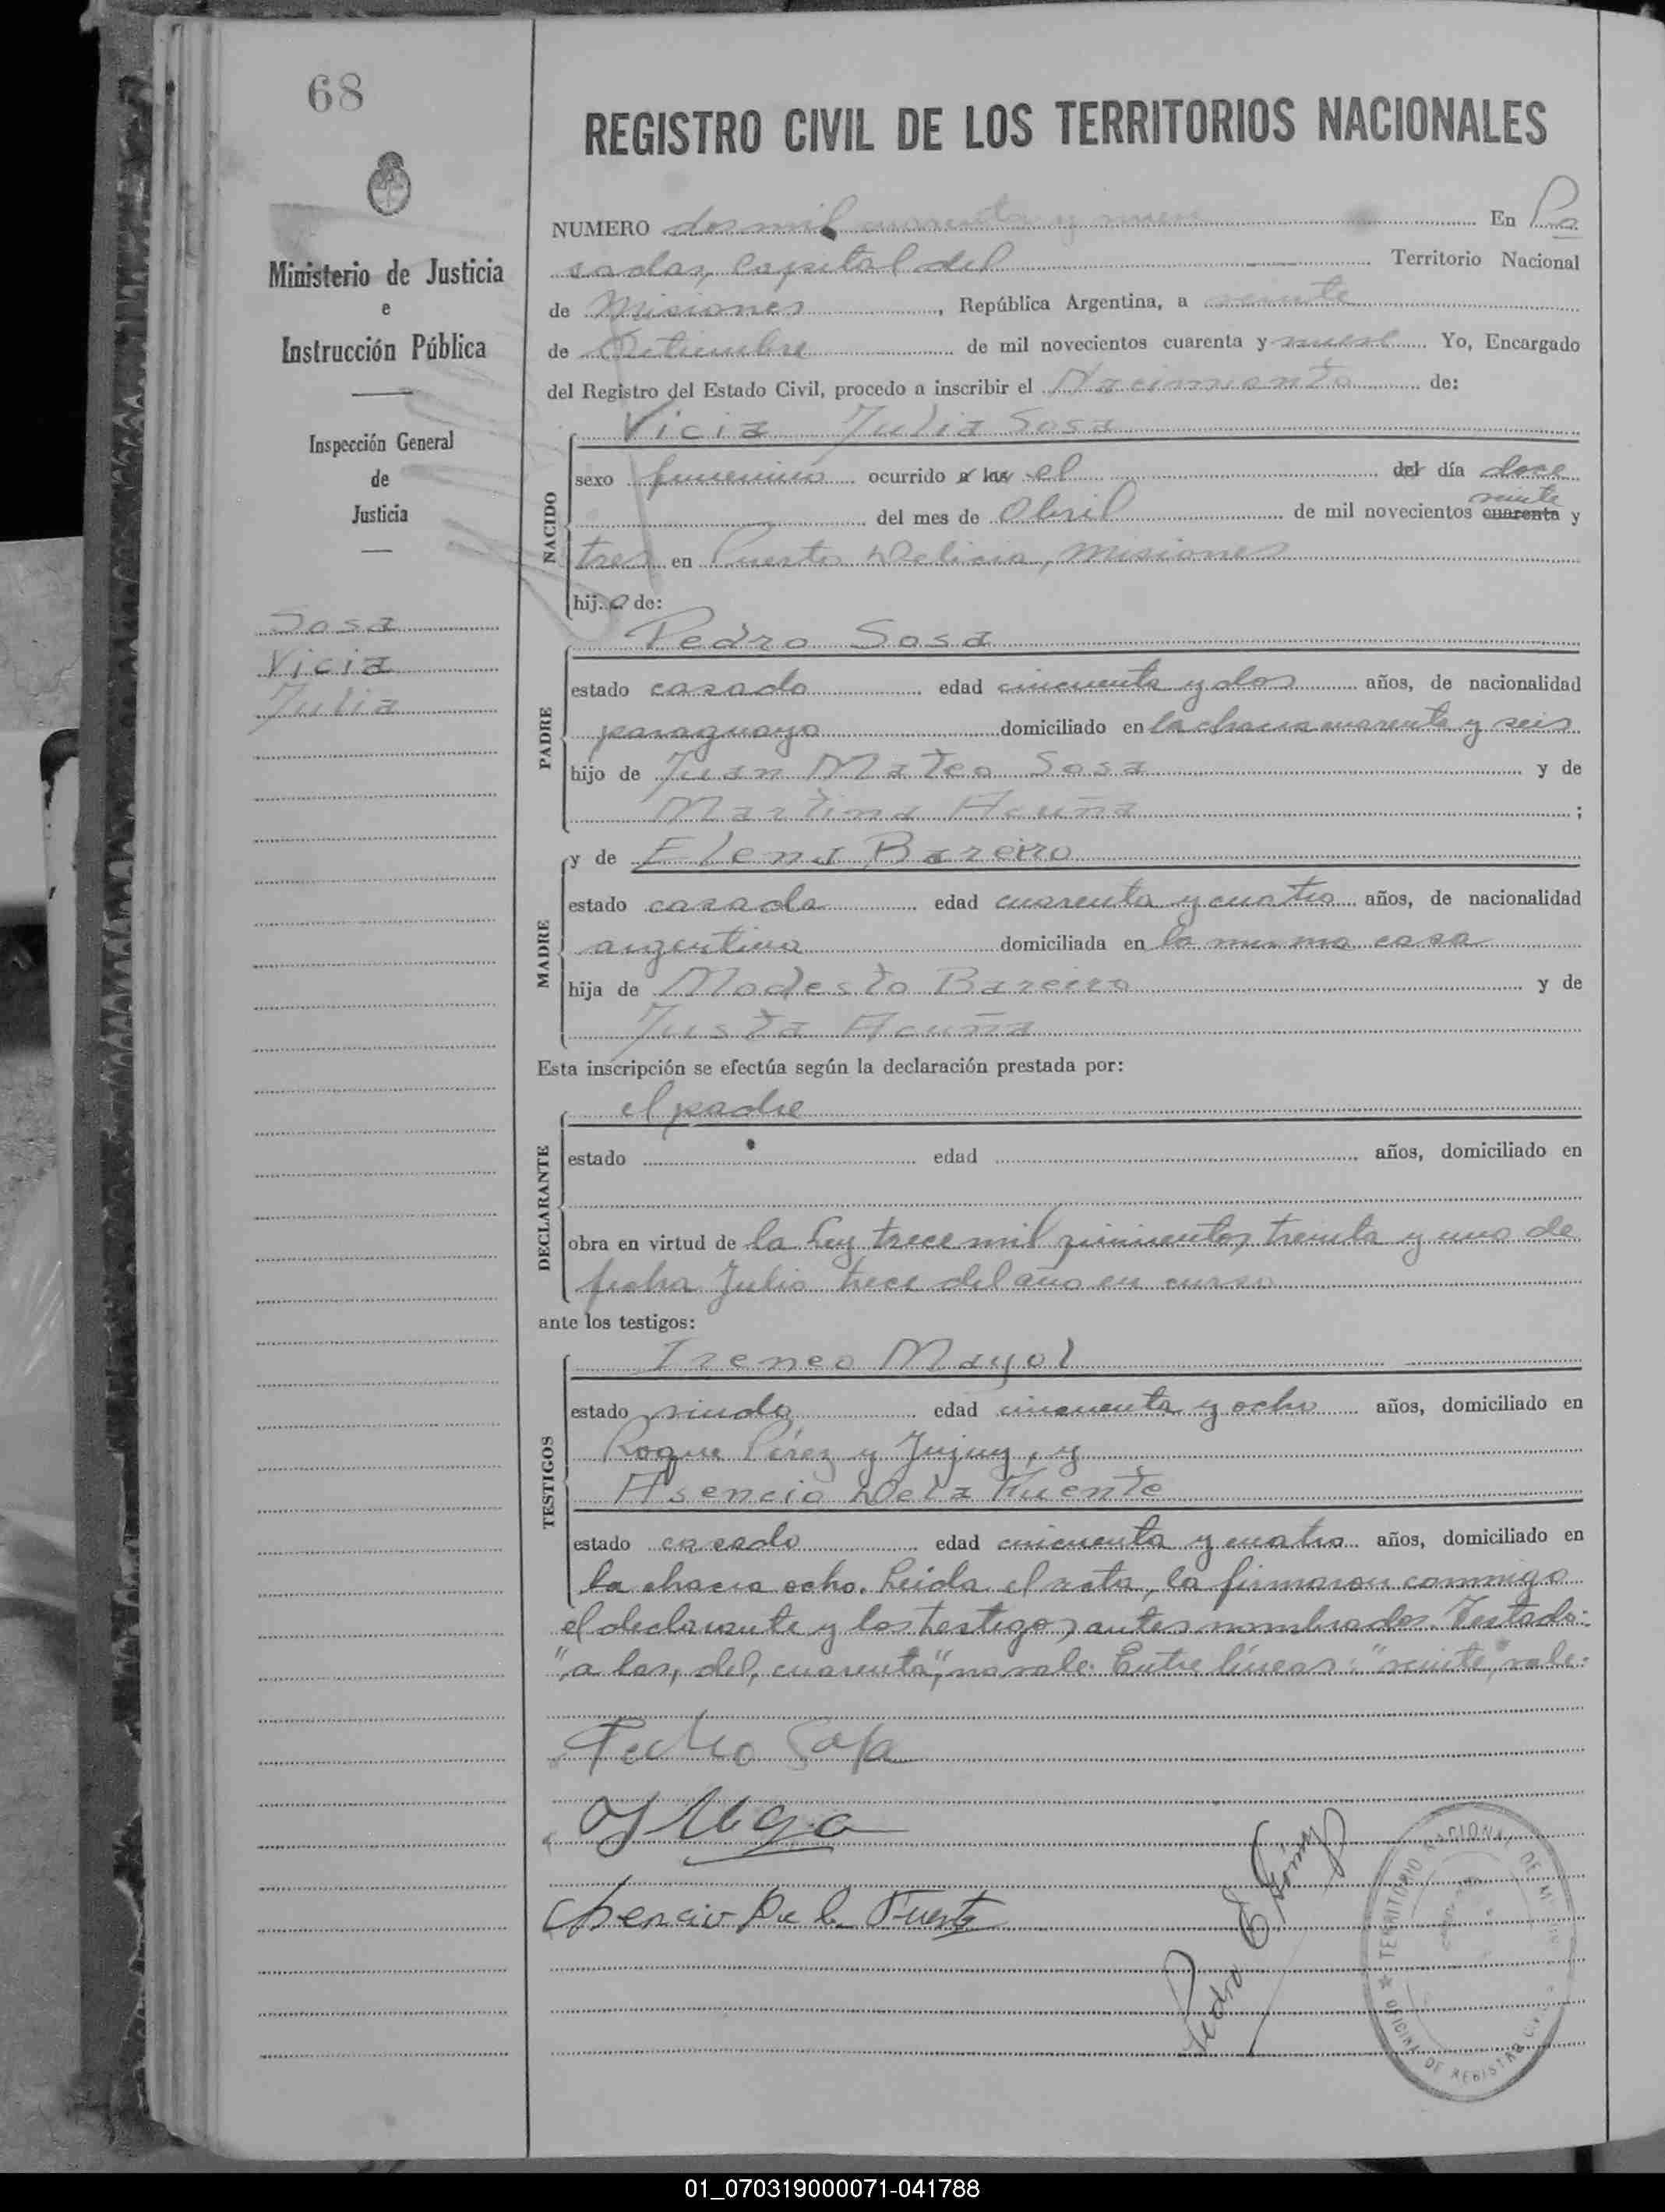 68
REGISTRO CIVIL DE LOS TERRITORIOS NACIONALES
Ministerio de Justicia
e
Instrucción Pública
Inspección General
de
Justicia
Sosa
Vicia
Julia
NUMERO dos mil cuarenta y nueve En Po
sadas, Capital del Territorio Nacional
de Misiones, República Argentina, a veinte
de Setiembre de mil novecientos cuarenta y nueve Yo, Encargado
del Registro del Estado Civil, procedo a inscribir el Nacimiento de:
Vicia Julia Sosa
NACIDO
sexo femenino ocurrido a las el del día doce
veinte
del mes de Abril de mil novecientos cuarenta y
tres en Puerto Delicia, Misiones
hij a de:
Pedro Sosa
PADRE
estado casado edad cincuenta y dos años, de nacionalidad
paraguayo domiciliado en la chacra cuarenta y seis
hijo de Juan Mateo Sosa y de
Martina Acuña ;
y de Elena Bareiro
MADRE
estado casada edad cuarenta y cuatro años, de nacionalidad
argentina domiciliada en la misma casa
hija de Modesto Bareiro y de
Justa Acuña
Esta inscripción se efectúa según la declaración prestada por:
el padre
DECLARANTE
estado edad años, domiciliado en
obra en virtud de la Ley trece mil quinientos treinta y uno de
fecha Julio trece del año en curso
ante los testigos:
Ireneo Mayol
TESTIGOS
estado viudo edad cincuenta y ocho años, domiciliado en
Roque Pérez y Jujuy, y
Asencio De la Fuente
estado casado edad cincuenta y cuatro años, domiciliado en
la chacra ocho. Leida el acta, la firmaron conmigo
el declarante y los testigos antes nombrados. Testado:
"a las, del, cuarenta", no vale. Entre líneas: "veinte", vale:
Pedro Sosa
Asencio De la Fuente
Pedro E. Gómez
TERRITORIO NACIONAL DE MISIONES
OFICINA DE REGISTRO CIVIL
01_070319000071-041788